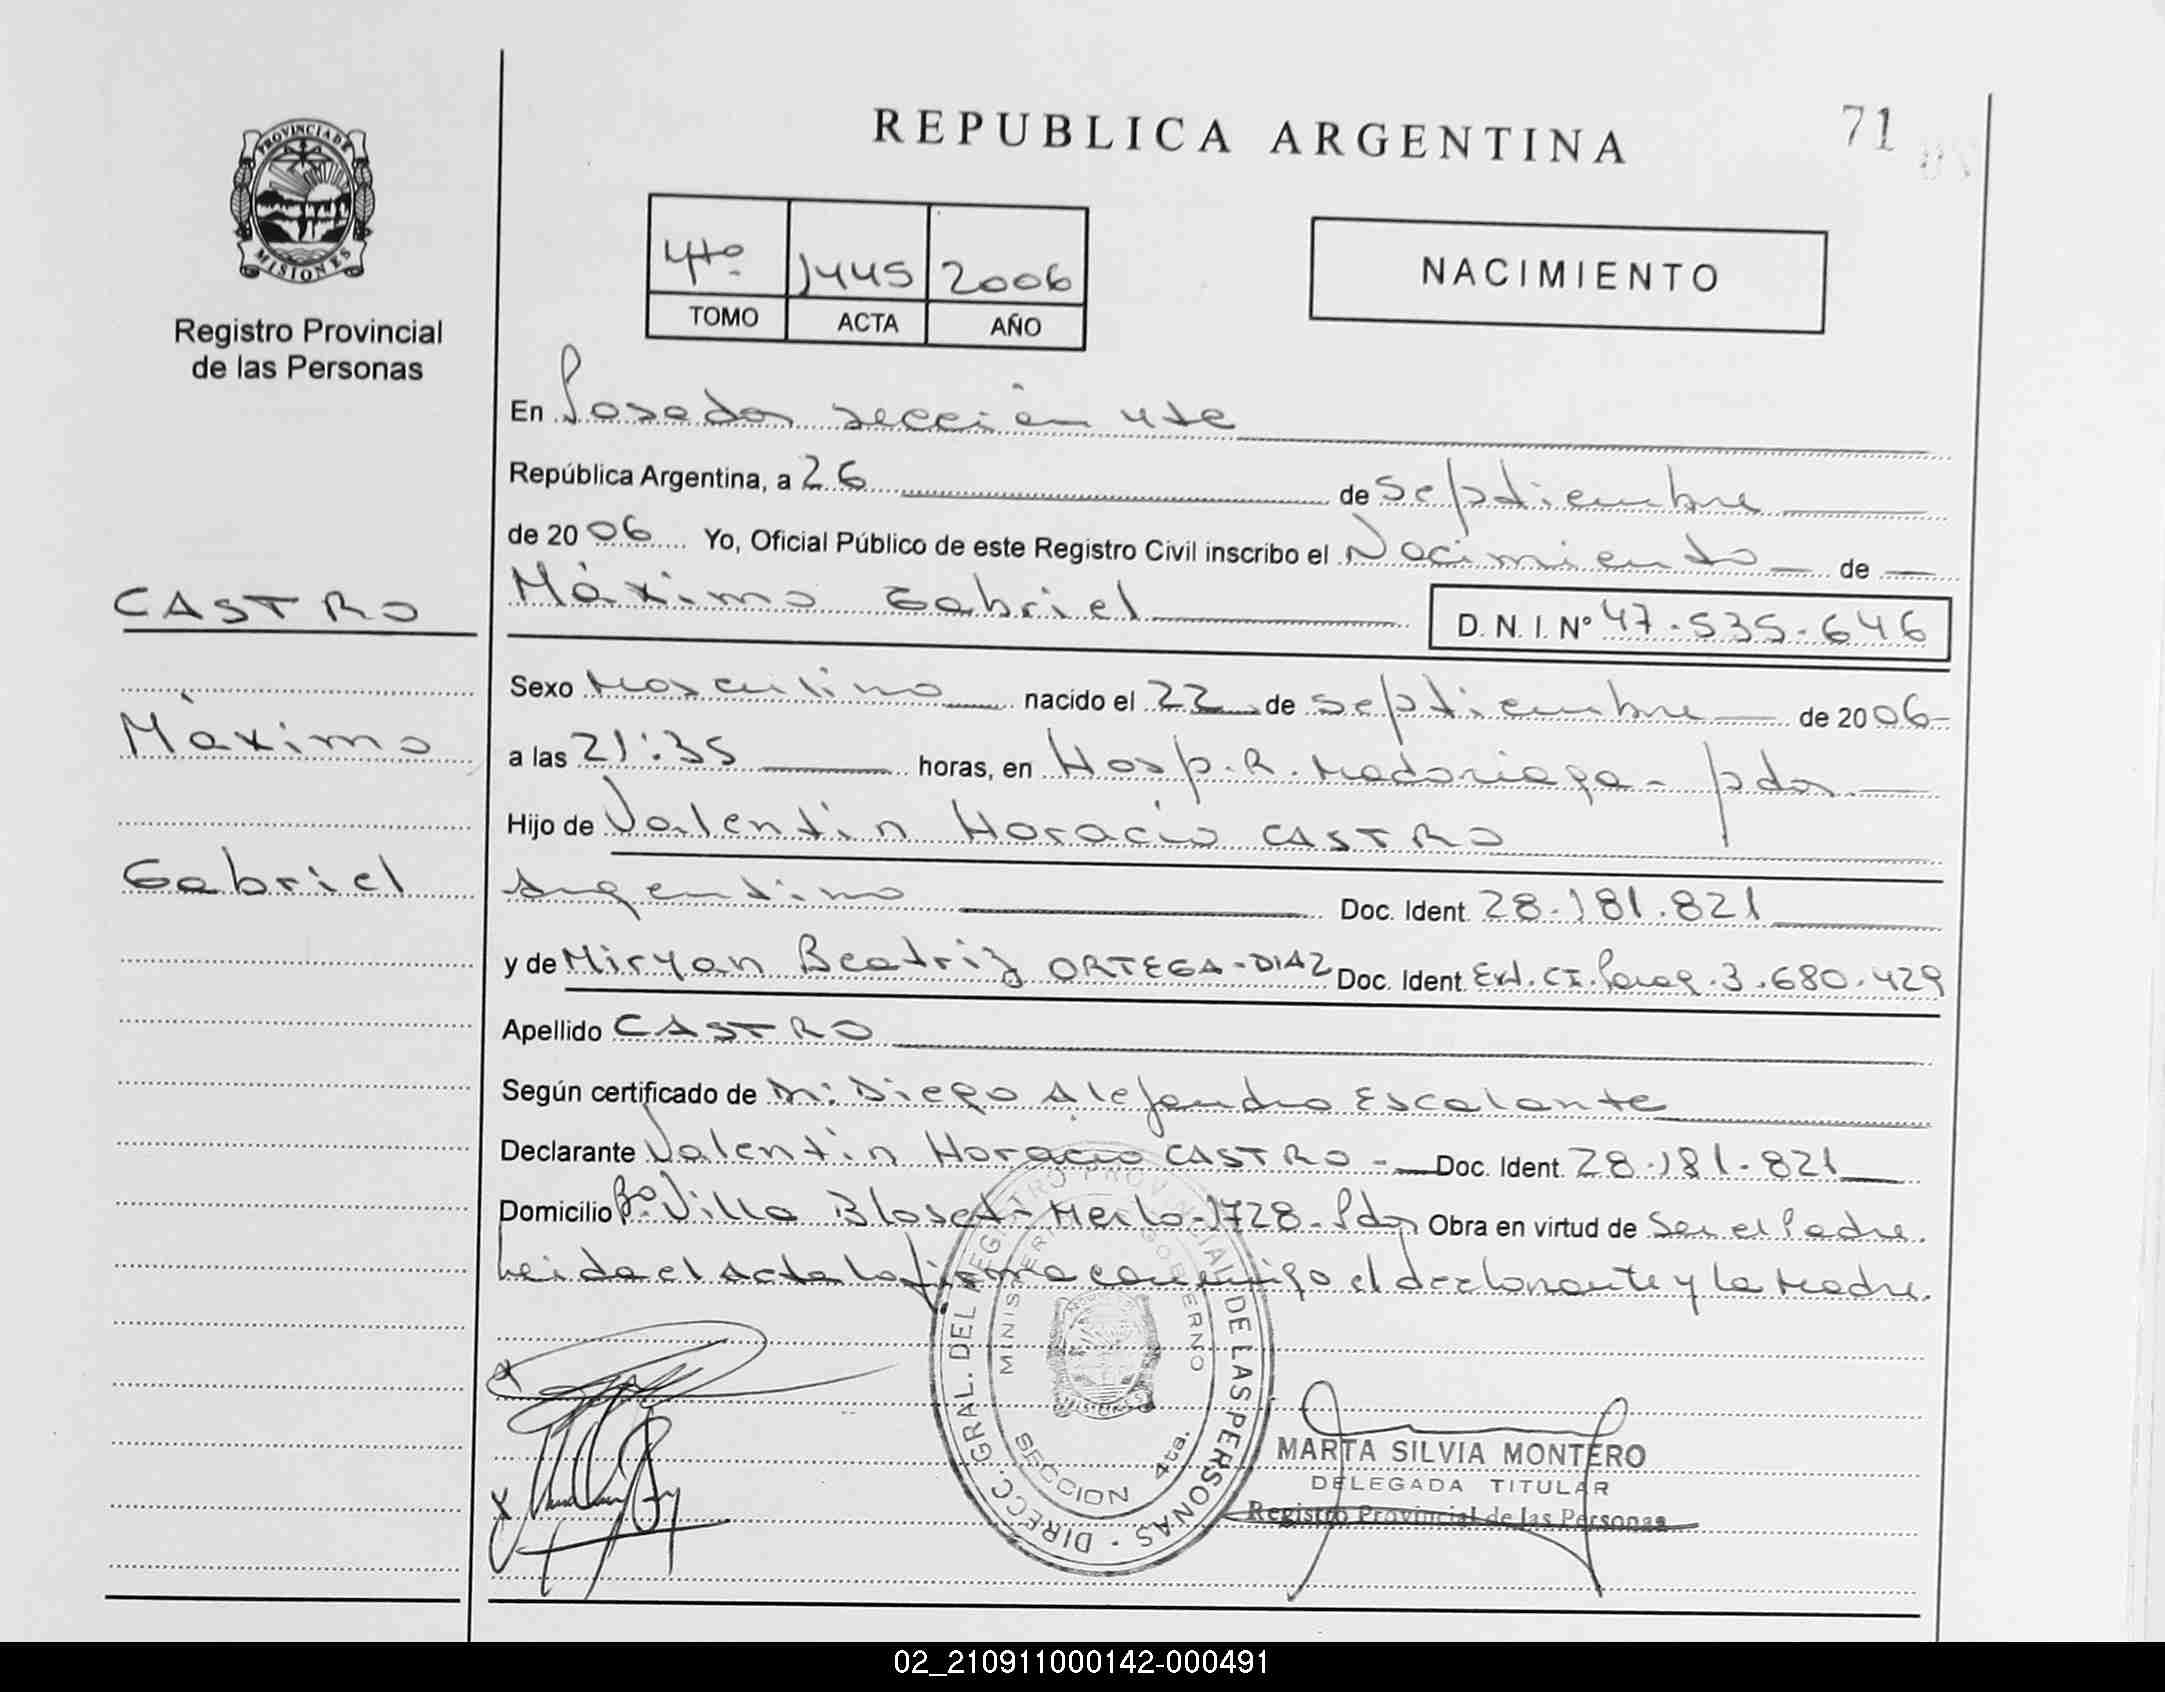 REPUBLICA ARGENTINA
71
PROVINCIA DE
MISIONES
Registro Provincial
de las Personas
4to 1445 2006
TOMO ACTA AÑO
NACIMIENTO
En Posadas sección 4ta
República Argentina, a 26 de Septiembre
de 2006 Yo, Oficial Público de este Registro Civil inscribo el Nacimiento de
CASTRO
Máximo Gabriel D. N. I. Nº 47.535.646
Sexo Masculino nacido el 22 de septiembre de 2006
Máximo
a las 21:35 horas, en Hosp. R. Madariaga - pdas.
Hijo de Valentín Horacio CASTRO
Gabriel
Argentino Doc. Ident. 28.181.821
y de Miryan Beatriz ORTEGA-DIAZ Doc. Ident. Ext. CI. Parag. 3.680.429
Apellido CASTRO
Según certificado de Dr: Diego Alejandro Escalante
Declarante Valentín Horacio CASTRO - Doc. Ident. 28.181.821
Domicilio Bº Villa Blosset - Merlo - 1728 - Pdas Obra en virtud de Ser el Padre.
Leida el acta la firma conmigo el declarante y la Madre.
DIRECC. GRAL. DEL REGISTRO PROVINCIAL DE LAS PERSONAS
MINISTERIO GOBIERNO
SECCION 4ta.
MARTA SILVIA MONTERO
DELEGADA TITULAR
Registro Provincial de las Personas
02_210911000142-000491